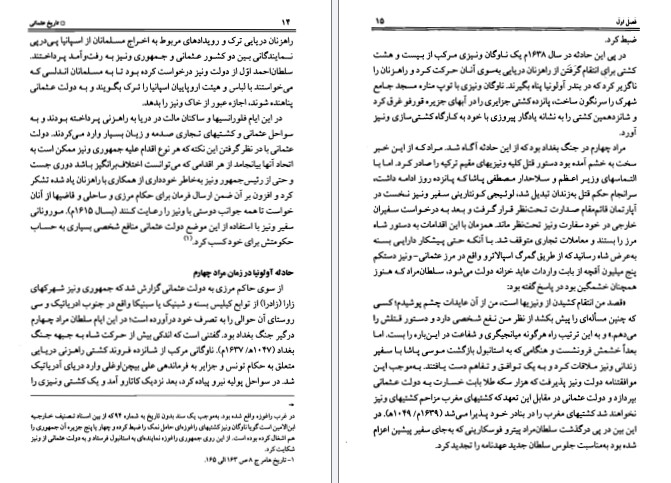 ۱۴
تاریخ عثمانی
راهزنان دریایی ترک و رویدادهای مربوط به اخراج مسلمانان از اسپانیا پی‌درپی
نمایندگانی بین دو کشور عثمانی و جمهوری ونیز به رفت‌وآمد پرداختند.
سلطان‌احمد اوّل از دولت ونیز درخواست کرده بود تا به مسلمانان اندلسی که
می‌خواستند با لباس و هیئت اروپاییان اسپانیا را ترک بگویند و به دولت عثمانی
پناهنده شوند، اجازه عبور از خاک ونیز را بدهد.
در این ایام فلورانسیها و ساکنان مالت در دریا به راهزنی پرداخته بودند و به
سواحل عثمانی و کشتیهای تجارتی صدمه و زیان بسیار وارد می‌کردند. دولت
عثمانی با در نظر گرفتن این نکته که هر نوع اقدام علیه جمهوری ونیز ممکن است به
اتحاد آنها بیانجامد از هر اقدامی که می‌توانست اختلاف‌برانگیز باشد دوری جست
و حتی از رئیس‌جمهور ونیز به‌خاطر خودداری از همکاری با راهزنان یاد شده تشکر
کرد و افزون بر آن ضمن ارسال فرمان برای حکام مرزی و ساحلی و قاضیها از آنان
خواست تا همه جوانب دوستی با ونیز را رعایت کنند (بسال ۱۶۱۵م). موروثانی
سفیر ونیز با استفاده از این موضع دولت عثمانی منافع شخصی بسیاری به حساب
حکومتش برای خود کسب کرد.(۱)
حادثه آولونیا در زمان مراد چهارم
از سوی حاکم مرزی به دولت عثمانی گزارش شد که جمهوری ونیز شهرکهای
زارا (زادرا) از توابع کیلیس بسنه و شبنیک یا سبنیکا واقع در جنوب ادریاتیک و سی
روستای آن حوالی را به تصرف خود درآورده است؛ در این ایام سلطان مراد چهارم
درگیر جنگ بغداد بود. گفتنی است که اندکی بیش از حرکت شاه به جبهه جنگ
بغداد (۱۰۴۷ه‍/۱۶۳۷م). ناوگانی مرکب از شانزده فروند کشتی راهزنی دریایی
متعلق به حکام تونس و جزایر به فرماندهی علی بیچن‌اوغلی وارد دریای آدریاتیک
شد. در سواحل پولیه نیرو پیاده کرد، بعد نزدیک کاتارو آمد و یک کشتی ونیزی را
در غرب راغوزه واقع شده بود. به‌موجب یک سند بدون تاریخ به شماره ۹۴ که از بین اسناد تصنیف خارجیه
ابن‌الامین است گویا ناوگان ونیز کشتیهای راغوزه‌ای حامل نمک را ضبط کرده و چهار یا پنج جزیره آن جمهوری را
هم اشغال کرده بوده است. از این روی جمهوری راغوزه نماینده‌ای به استانبول فرستاد و به دولت عثمانی از ونیز
شکایت کرد.
۱- تاریخ هامر ج ۸ ص ۱۶۳ الی ۱۶۵.
فصل اول
۱۵
ضبط کرد.
در پی این حادثه در سال ۱۶۳۸م یک ناوگان ونیزی مرکب از بیست و هشت
کشتی برای انتقام گرفتن از راهزنان دریایی به‌سوی آنان حرکت کرد و راهزنان را
ناگزیر کرد که در بندر آولونیا پناه بگیرند. ناوگان ونیزی با توپ مناره مسجد جامع
شهرک را سرنگون ساخت، پانزده کشتی جزایری را در آبهای جزیره قورفو غرق کرد
و شانزدهمین کشتی را به نشانه یادگار پیروزی با خود به کارگاه کشتی‌سازی ونیز
آورد.
مراد چهارم در جنگ بغداد بود که از این حادثه آگاه شد. مراد که از این خبر
سخت به خشم آمده بود دستور قتل کلیه ونیزیهای مقیم ترکیه را صادر کرد. اما با
التماسهای وزیر اعظم و سلاحدار مصطفی پاشا که پانزده روز ادامه داشت،
سرانجام حکم قتل به‌زندان تبدیل شد، لوئیجی کونتارینی سفیر ونیز نخست در
آپارتمان قائم‌مقام صدارت تحت‌نظر قرار گرفت و بعد به درخواست سفیران
خارجی در خود سفارت ونیز تحت‌نظر ماند. همزمان با این اقدامات به دستور شاه
مرز را بستند و معاملات تجاری متوقف شد. با آنکه حتی پیشکار دارایی بسنه
به‌عرض شاه رسانید که از طریق گمرگ اسپالاترو واقع در مرز عثمانی-ونیز دستکم
پنج میلیون آقچه از بابت واردات عاید خزانه دولت می‌شود، سلطان‌مراد که هنوز
همچنان خشمگین بود در پاسخ گفته بود:
«قصد من انتقام کشیدن از ونیزیها است، من از آن عایدات چشم پوشیدم؛ کسی
که چنین مسأله‌ای را پیش بکشد از نظر من نفع شخصی دارد و دستور قتلش را
می‌دهم.» و به این ترتیب راه هرگونه میانجیگری و شفاعت در این‌باره را بست. اما
بعداً خشمش فرونشست و هنگامی که به استانبول بازگشت موسی پاشا با سفیر
زندانی ونیز ملاقات کرد و به یک توافق و تفاهم دست یافتند. به‌موجب این
موافقتنامه دولت ونیز پذیرفت که هزار سکه طلا بابت خسارت به دولت عثمانی
بپردازد و دولت عثمانی در مقابل این تعهد که کشتیهای مغرب مزاحم کشتیهای ونیز
نخواهند شد کشتیهای مغرب را در بنادر خود پذیرا می‌شد (۱۶۳۹م/۱۰۴۹ه‍). در
این بین در پی درگذشت سلطان‌مراد پیترو فوسکارینی که به‌جای سفیر پیشین اعزام
شده بود به‌مناسبت جلوس سلطان جدید عهدنامه را تجدید کرد.